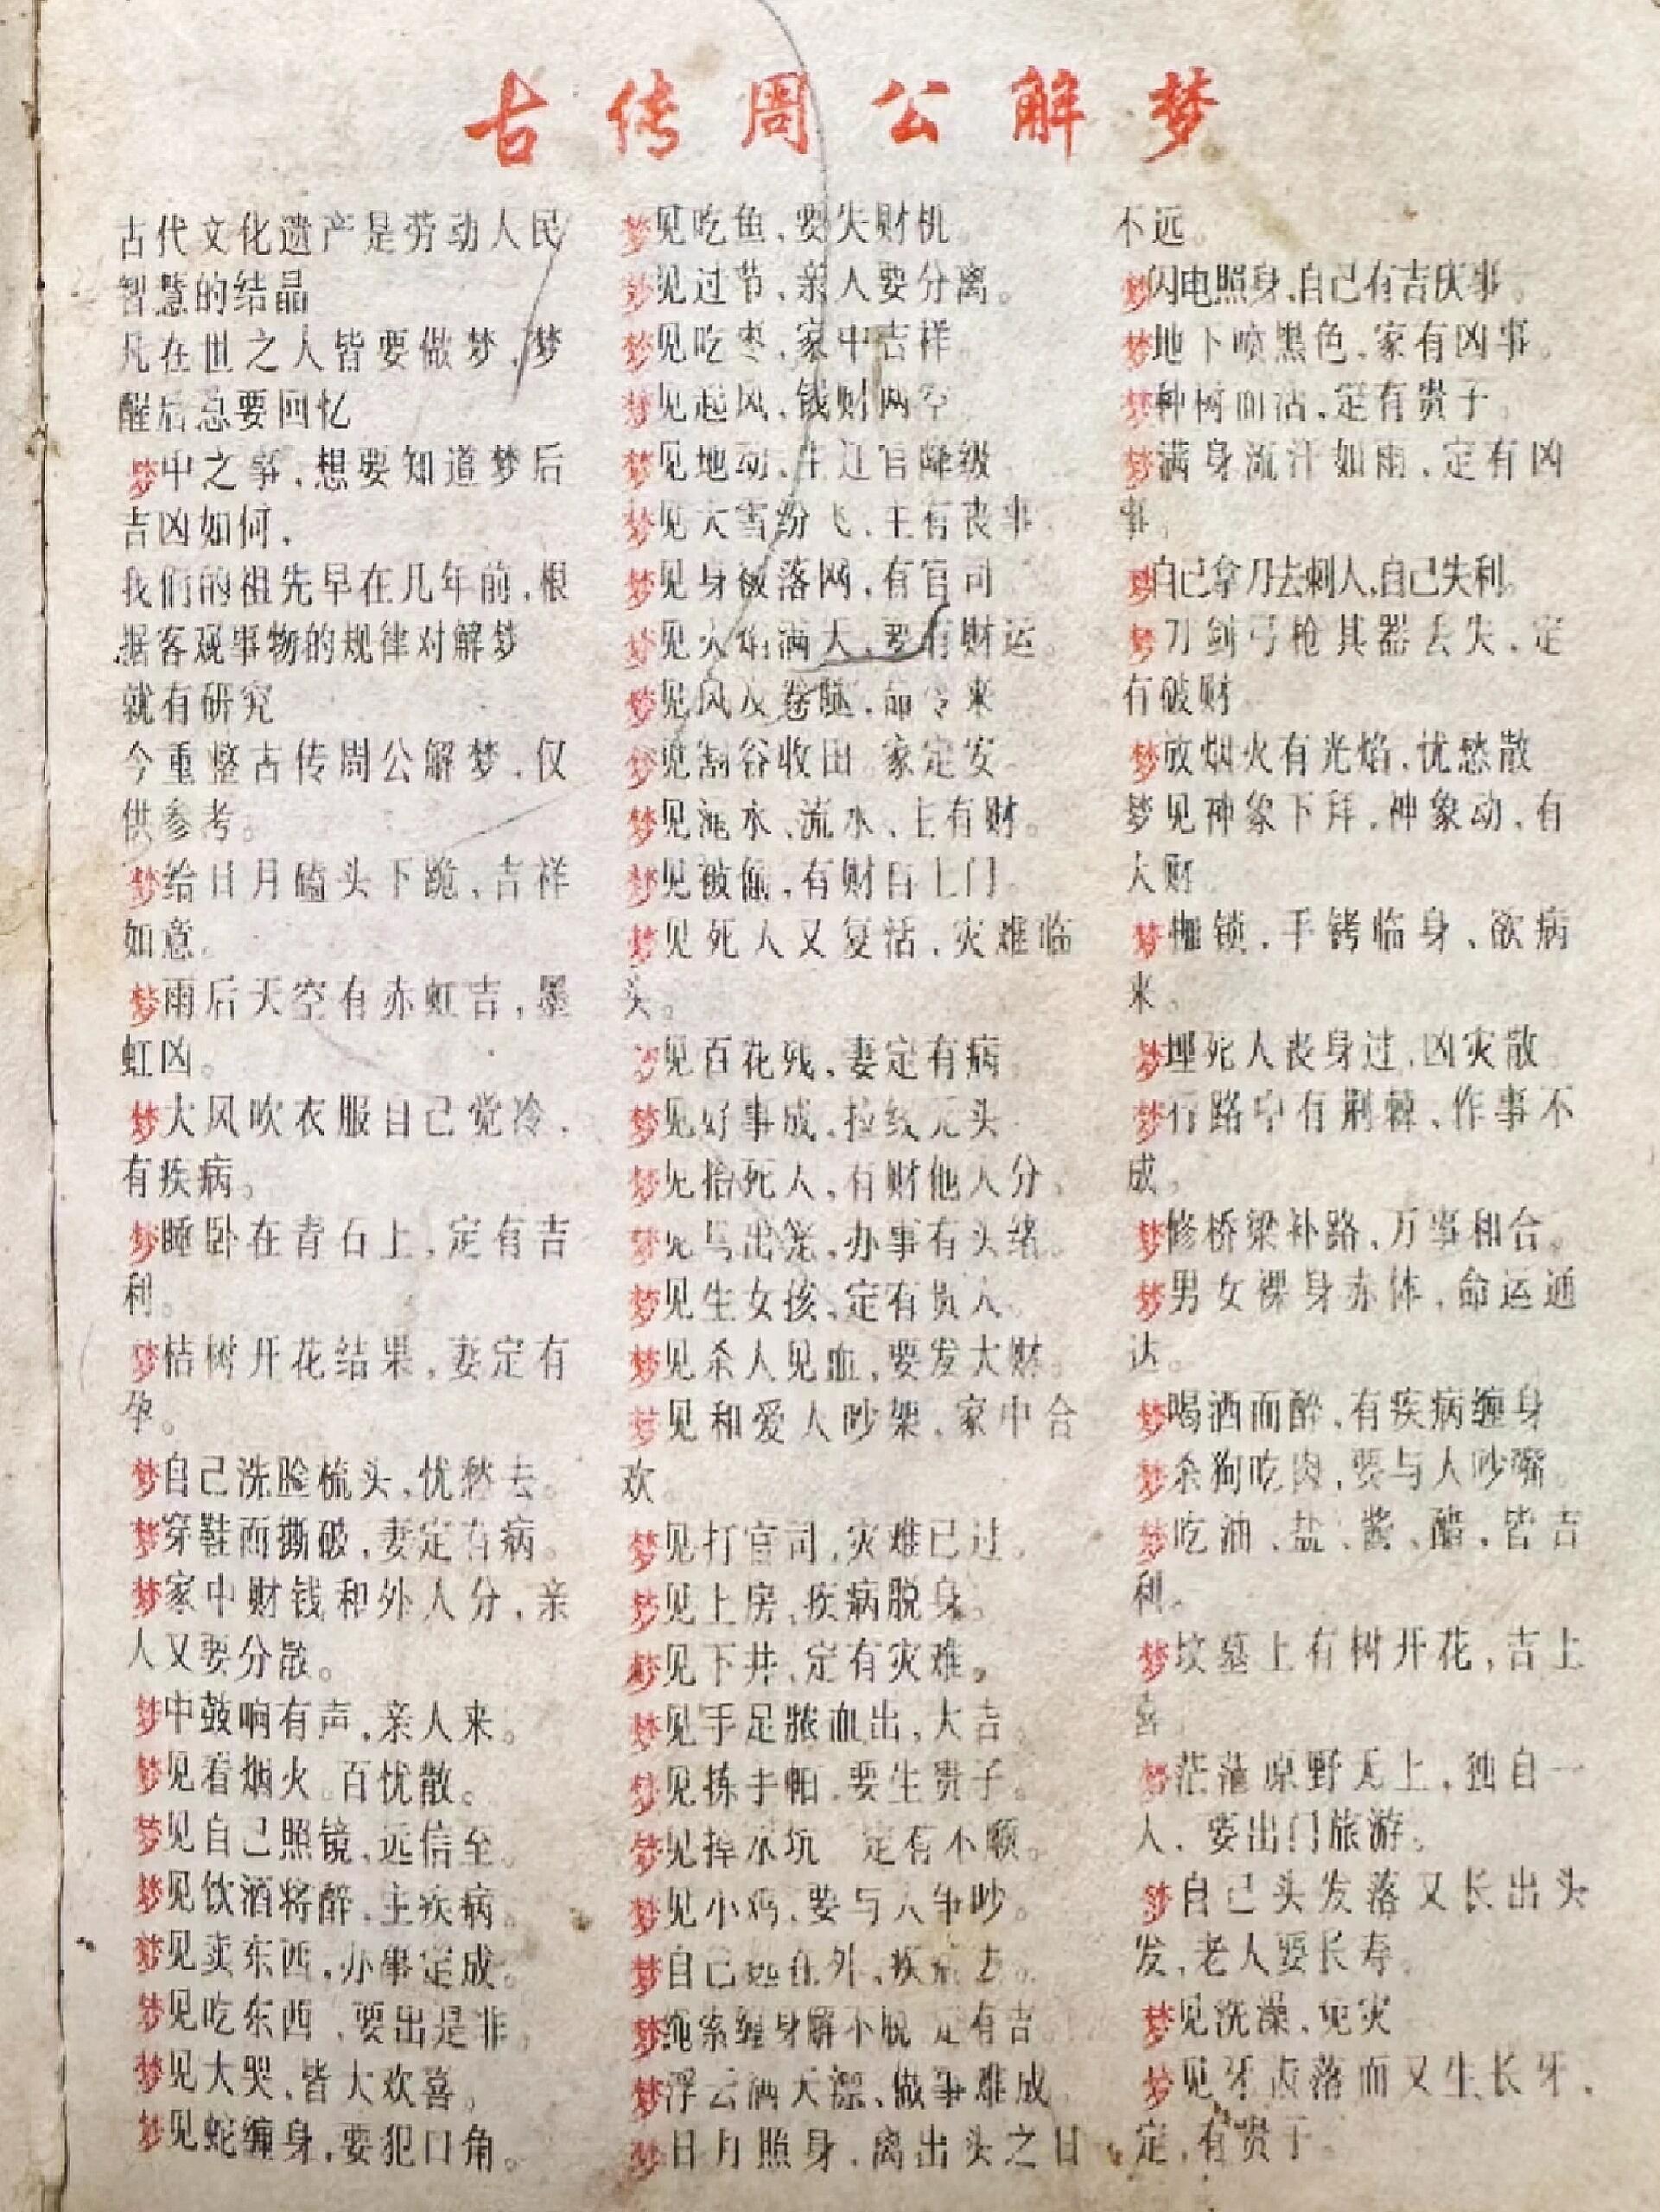 古传周公解梦
古代文化遗产是劳动人民
智慧的结晶
凡在世之人皆要做梦,梦
醒后总要回忆
梦中之事,想要知道梦后
吉凶如何,
我们的祖先早在几年前,根
据客观事物的规律对解梦
就有研究
今重整古传周公解梦,仅
供参考。
梦给日月磕头下跪、吉祥
如意。
梦雨后天空有赤虹吉,墨
虹凶。
梦大风吹衣服自己觉冷,
有疾病。
梦睡卧在青石上,定有吉
利。
梦桔树开花结果,妻定有
孕。
梦自己洗脸梳头,忧愁去。
梦穿鞋而撕破,妻定有病。
梦家中财钱和外人分,亲
人又要分散。
梦中鼓响有声,亲人来。
梦见看烟火。百忧散。
梦见自己照镜、远信至。
梦见饮酒将醉、主疾病。
梦见卖东西,办事定成。
梦见吃东西、要出是非。
梦见大哭、皆大欢喜。
梦见蛇缠身,要犯口角。
梦见吃鱼、要失财机。
梦见过节、亲人要分离。
梦见吃枣、家中吉祥
梦见起风、钱财两空
梦见地动、主迁官降级
梦见大雪纷飞、主有丧事
梦见身被落网,有官司
梦见火焰满天、要有财运。
梦见风及卷腿,命令来
梦见割谷收田 家定安
梦见滩水、流水、主有财。
梦见被偷,有财自上门。
梦见死人又复活,灾难临
头。
梦见百花残、妻定有病
梦见好事成、拉线无头
梦见抬死人,有财他人分。
梦见马出笼,办事有头绪。
梦见生女孩、定有贵人。
梦见杀人见血,要发大财。
梦见和爱人吵架、家中合
欢。
梦见打官司,灾难已过。
梦见上房、疾病脱身。
梦见下井、定有灾难。
梦见手足脓血出,大吉。
梦见拣手帕、要生贵子。
梦见掉水坑 定有不顺。
梦见小鸡、要与人争吵。
梦自己远在外、疾病去。
梦绳索缠身解不脱 定有吉
梦浮云满天漂、做事难成
梦日月照身、离出头之日
不远。
梦闪电照身,自己有吉庆事。
梦地下喷黑色、家有凶事。
梦种树而活,定有贵子。
梦满身流汗如雨、定有凶
事。
梦自己拿刀去刺人,自己失利。
梦刀剑弓枪其器丢失、定
有破财
梦放烟火有光焰,忧愁散
梦见神象下拜,神象动,有
大财
梦枷锁,手铐临身、欲病
来。
梦埋死人丧身过,凶灾散
梦行路中有荆棘、作事不
成。
梦修桥梁补路、万事和合。
梦男女裸身赤体,命运通
达。
梦喝酒而醉,有疾病缠身
梦杀狗吃肉,要与人吵嘴。
梦吃油、盐、酱、醋,皆吉
利。
梦坟墓上有树开花,吉上
喜
梦茫茫原野无上,独自一
人、要出门旅游。
梦自己头发落又长出头
发,老人要长寿。
梦见洗澡、免灾
梦见牙齿落而又生长牙、
定,有贵子。